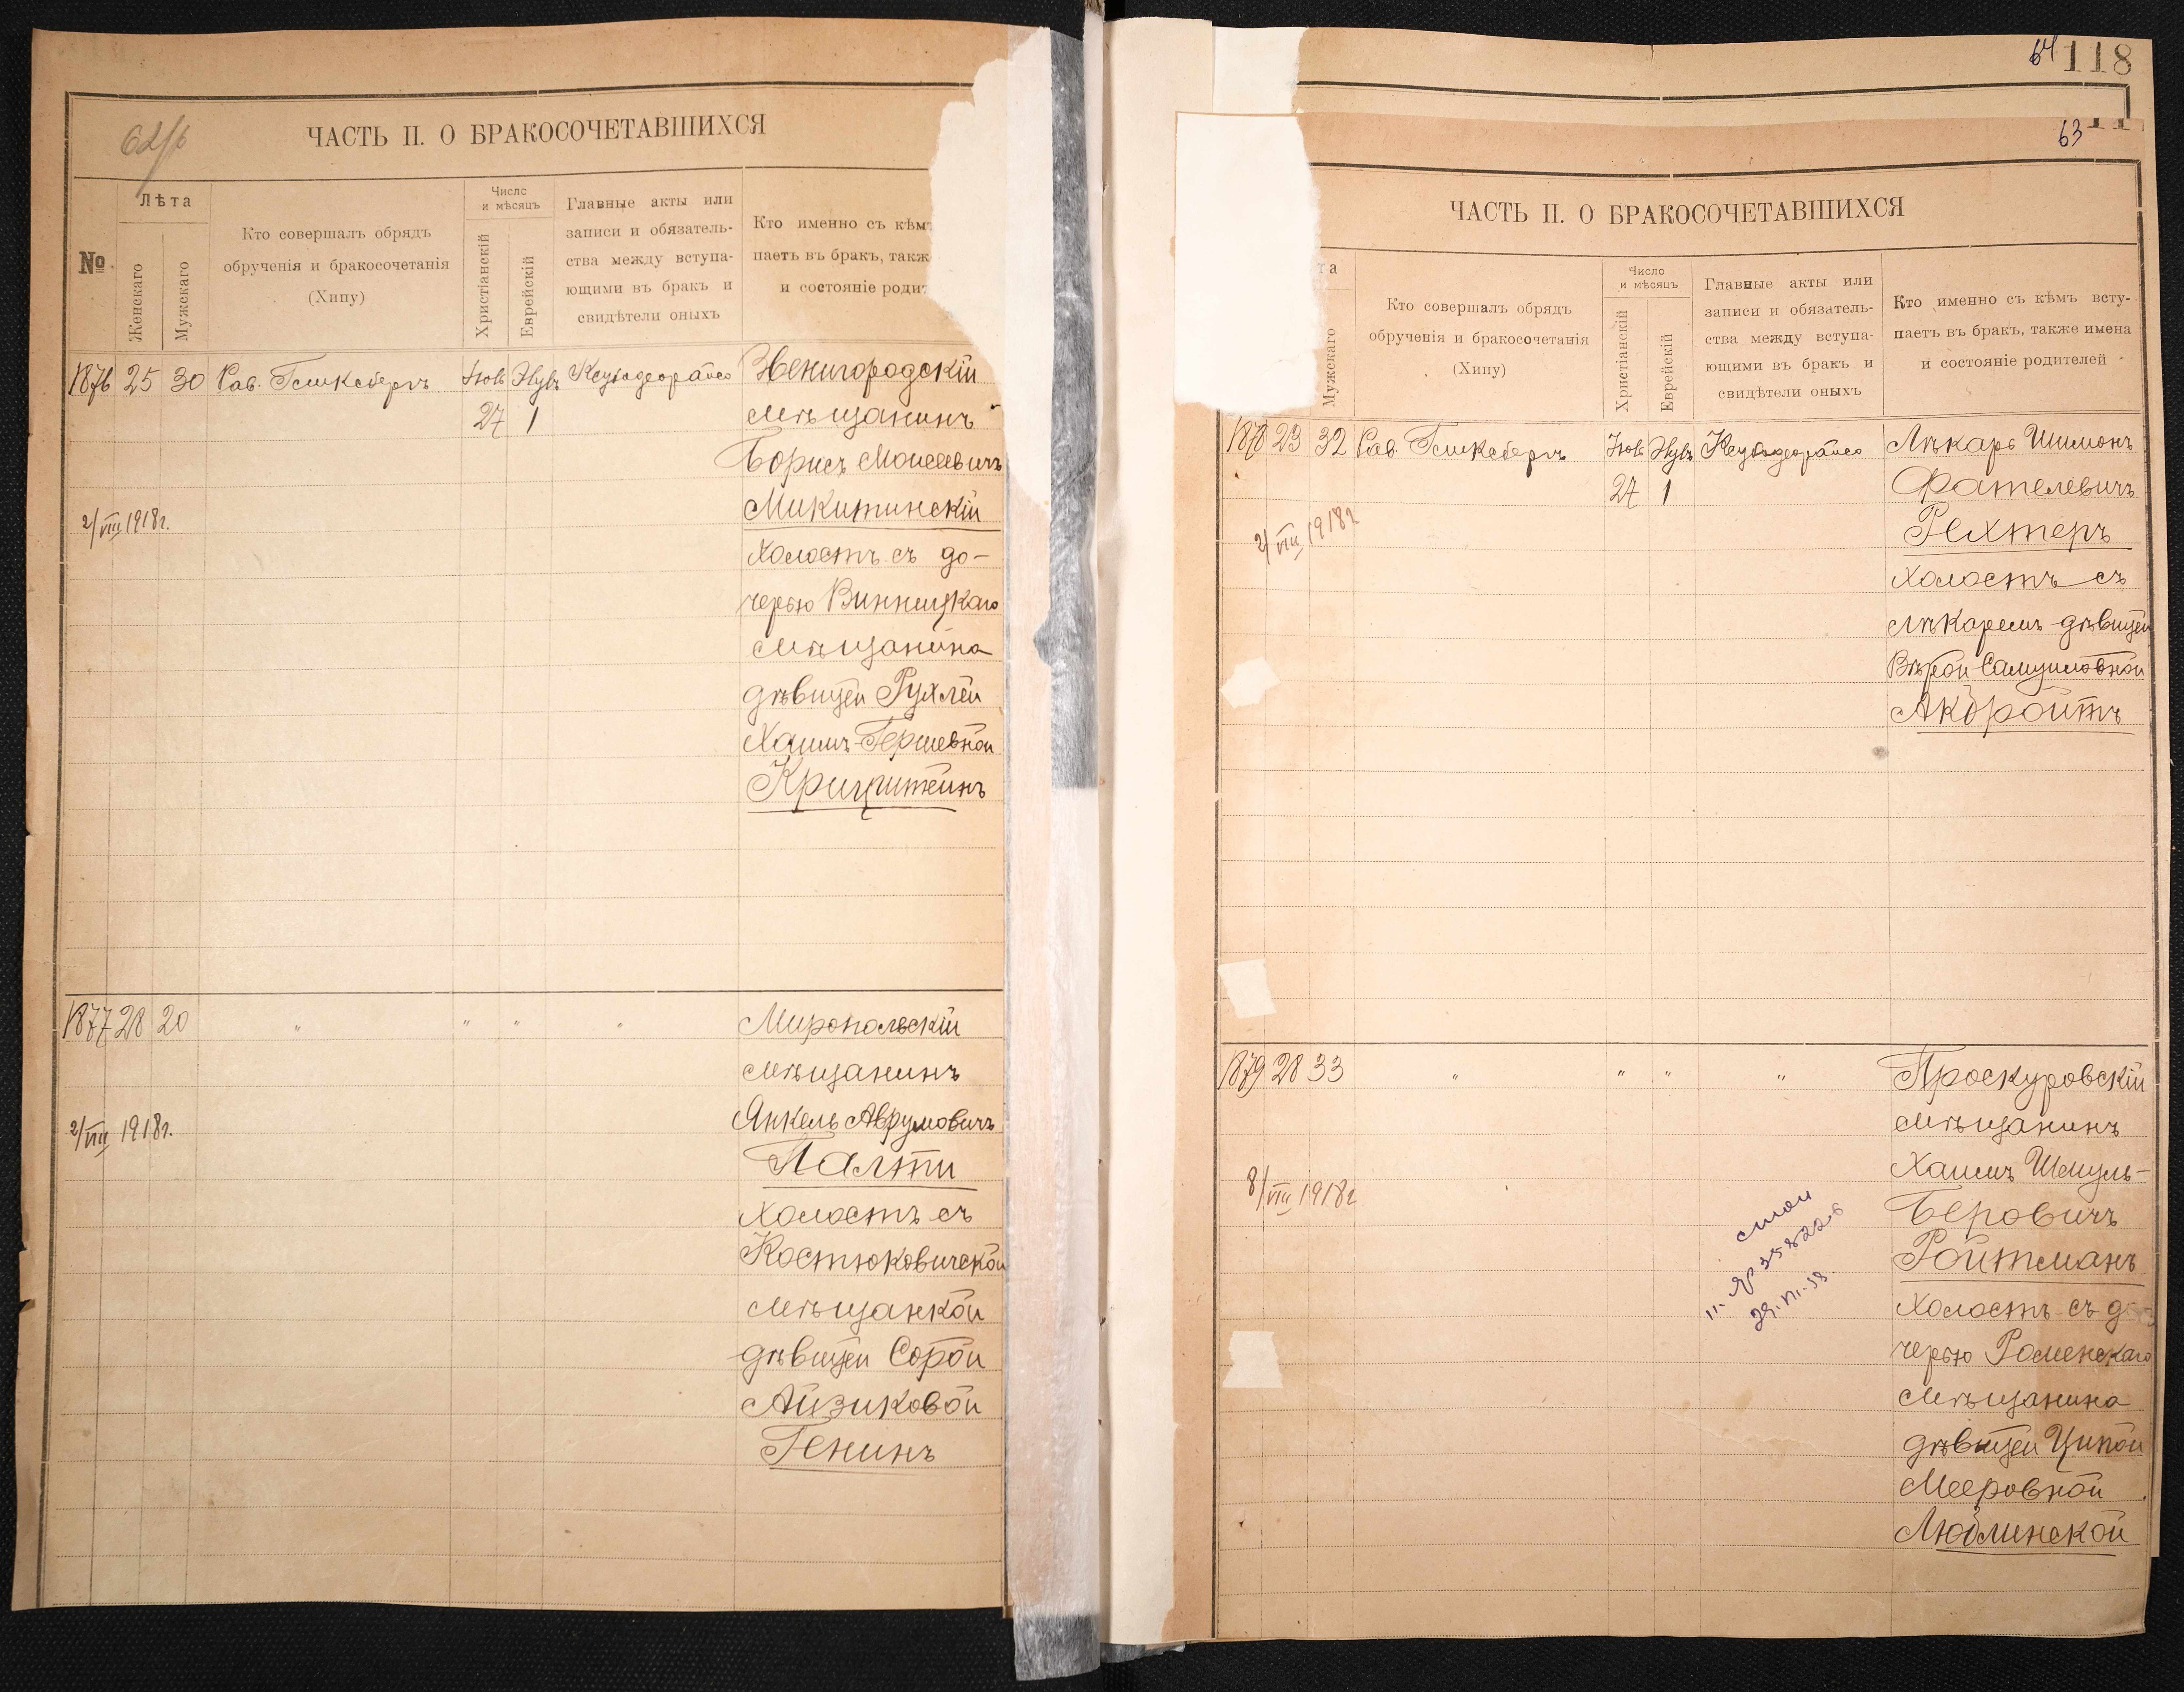 62/б
ЧАСТЬ II. О БРАКОСОЧЕТАВШИХСЯ
№
Лѣта
Женскаго
Мужскаго
Кто совершалъ обрядъ
обрученія и бракосочетанія
(Хипу)
Число
и мѣсяцъ
Христіанскій
Еврейскій
Главные акты или
записи и обязатель-
ства между вступа-
ющими въ бракъ и
свидѣтели оныхъ
Кто именно съ кѣм
паетъ въ бракъ, такж
и состояніе родит
1876 25 30 Рав. Гликсбергъ
27 1
2/VIII 1918г.
Звенигородскій
мѣщанинъ
Борисъ Моисеевичъ
Микитинскій
холостъ съ до-
черью Винницкаго
мѣщанина
дѣвицей Рухлей
Хаимъ-Гершевной
Крицштейнъ
1877 28 20 " " " "
2/VIII 1918г.
Миропольскій
мѣщанинъ
Янкель Аврумовичъ
Палти
холостъ съ
Костюковичской
мѣщанкой
дѣвицей Сорой
Айзиковой
Генинъ
64 118
63
ЧАСТЬ II. О БРАКОСОЧЕТАВШИХСЯ
та
Мужскаго
Кто совершалъ обрядъ
обрученія и бракосочетанія
(Хипу)
Число
и мѣсяцъ
Христіанскій
Еврейскій
Главные акты или
записи и обязатель-
ства между вступа-
ющими въ бракъ и
свидѣтели оныхъ
Кто именно съ кѣмъ всту-
паетъ въ бракъ, также имена
и состояніе родителей
1878 23 32 Рав. Гликсбергъ
27 1
2/VIII 1918г
Лѣкарь Шимонъ
Фателевичъ
Рехтеръ
холостъ съ
лѣкаремъ-дѣвицей
Вѣрой Самуиловной
Акбройтъ
1879 28 33 " " " "
8/VIII 1918г
Проскуровскій
мѣщанинъ
Хаимъ Шмуль-
Беровичъ
Ройтманъ
холостъ съ до-
черью Роменскаго
мѣщанина
дѣвицей Ципой
Мееровной
Люблинской